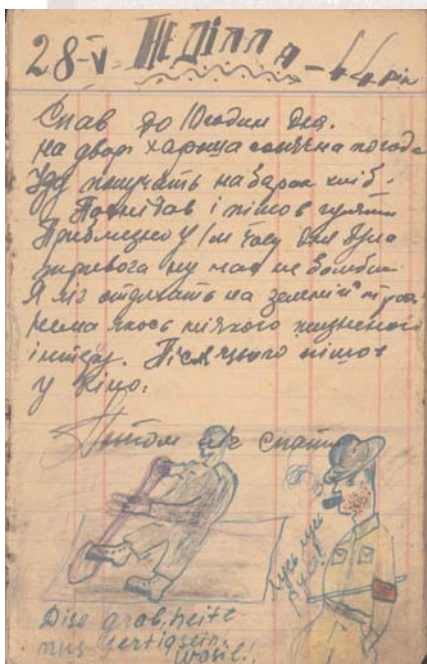 28-V НЕДІЛЯ - 44 рік
Спав до 10 годин дня.
на дворі хароша сонячна погода
Іду получать на барак хліб.
Поснідав і пішов гуляти
Приблизно у 1 ш часу дня була
тиревога ну нас не бомбил
Я ліг отдихать на зеленій траві
нема якось ніякого жизненого
інтерас. Після цього пішов
у кіно.
Потом ліг спати
Dise grab, heite
mus fertigsein.
Wasil!